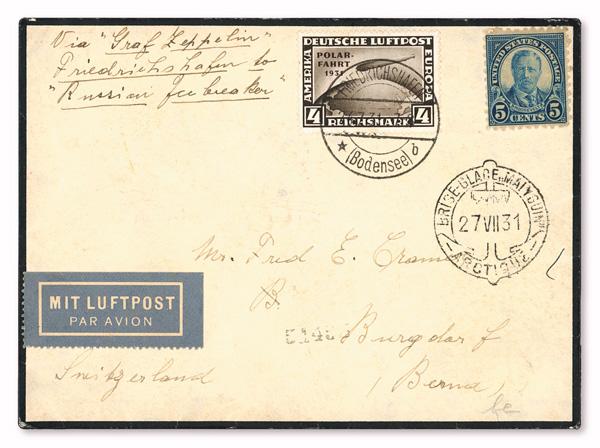 Via "Graf Zeppelin"
Friedrichshafen to
"Russian Icebreaker"
DEUTSCHE LUFTPOST
POLAR-
FAHRT
1931
AMERIKA
EUROPA
4 REICHSMARK 4
FRIEDRICHSHAFEN
(Bodensee) d
UNITED STATES POSTAGE
5 CENTS 5
BRISE-GLACE "MALYGUIN"
27 VII 31
ARCTIQUE
Mr. Fred E.
B.
MIT LUFTPOST
PAR AVION
Burgdorf
Switzerland
(Berne)